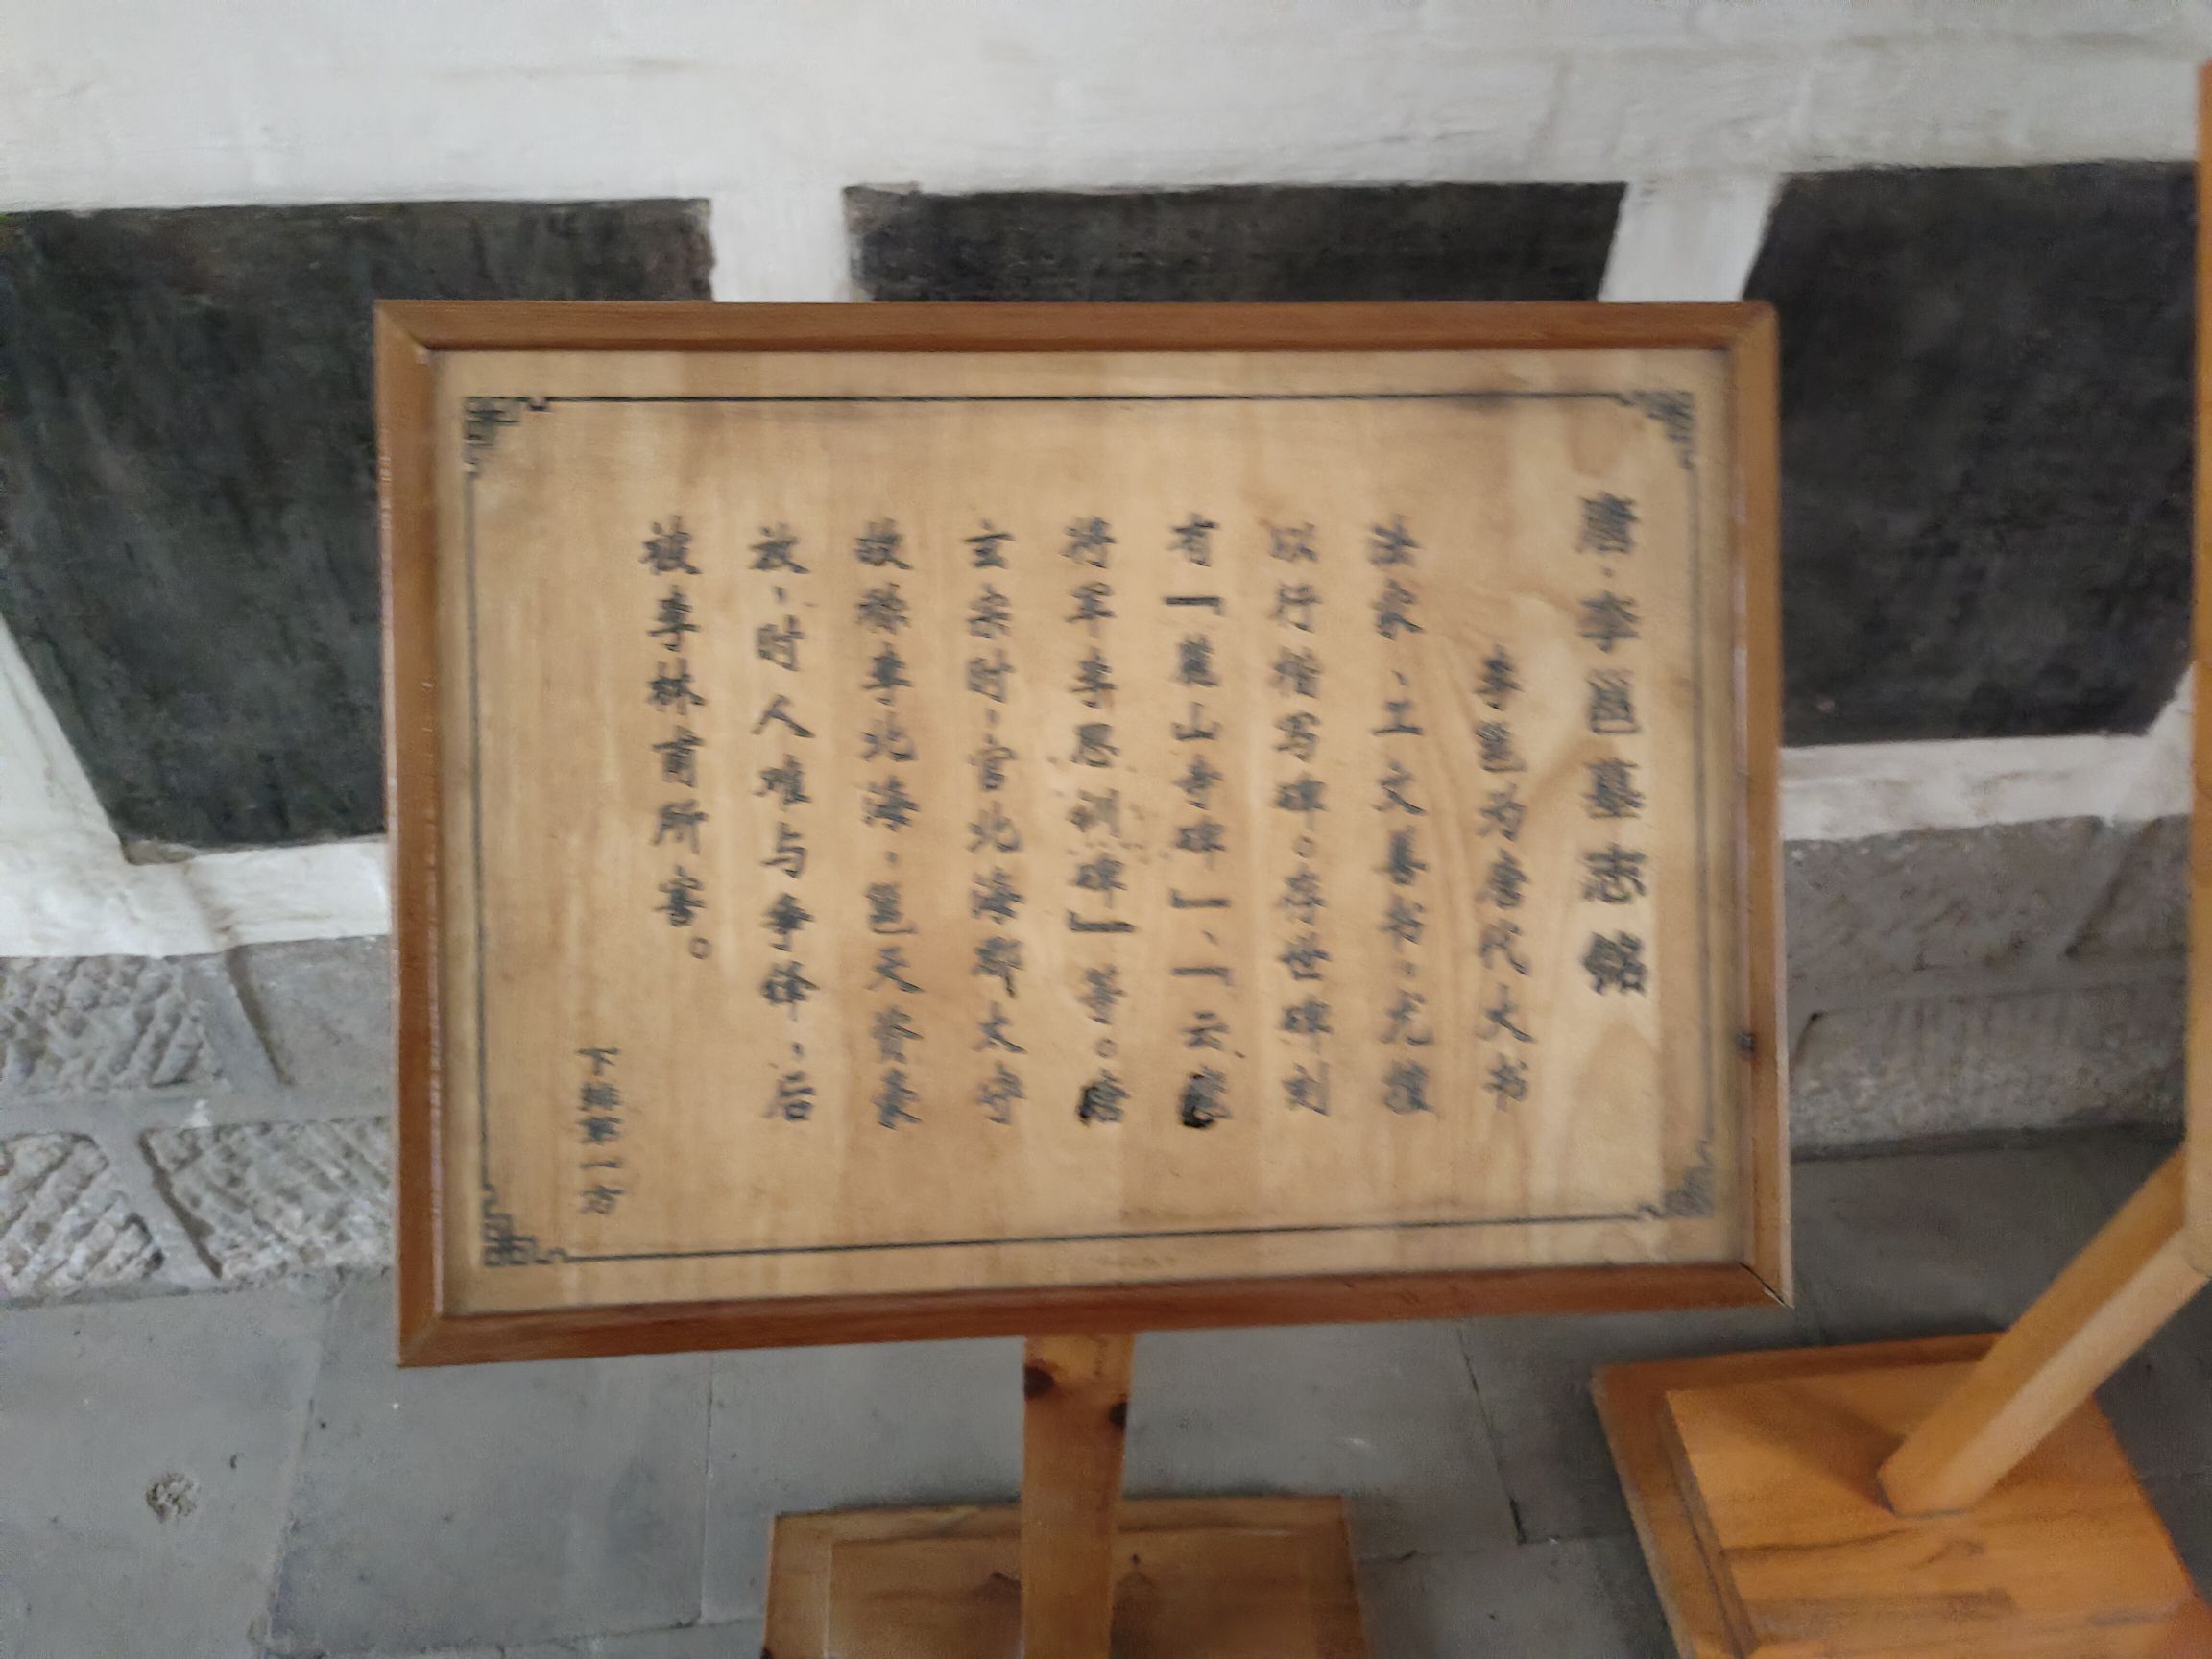 唐·李邕墓志铭
李邕为唐代大书
法家，工文善书。尤擅
以行楷写碑。存世碑刻
有「麓山寺碑」、「云麾
将军李思训碑」等。唐
玄宗时，官北海郡太守
故称李北海，邕天资豪
放，时人难与争锋，后
被李林甫所害。
下排第一方